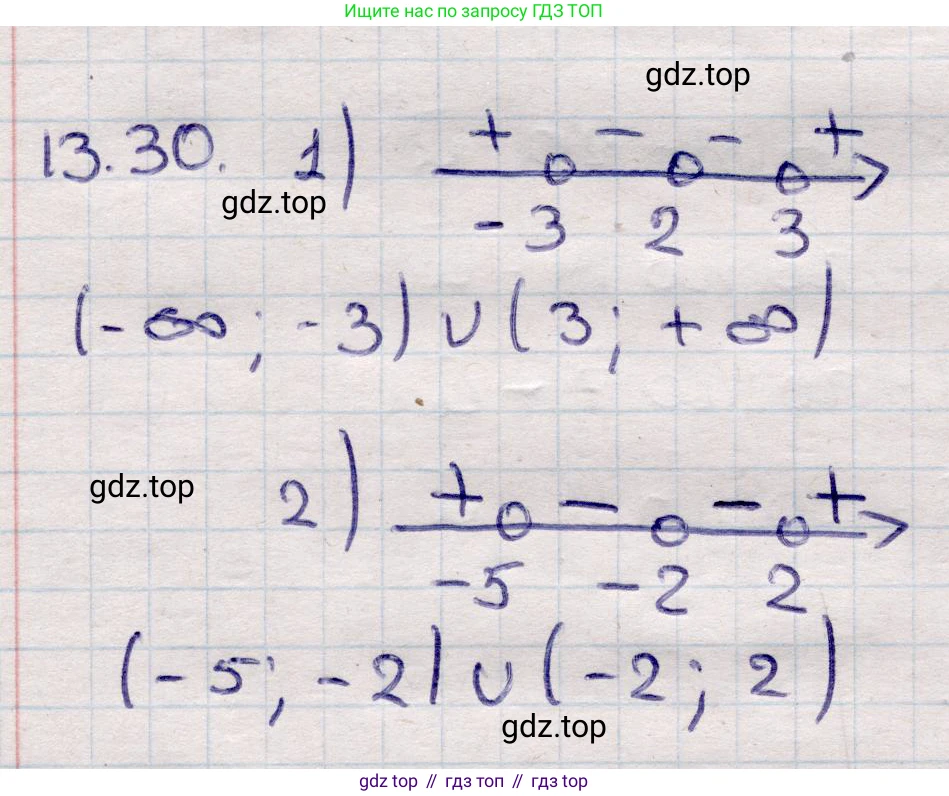 Ищите нас по запросу ГДЗ ТОП
gdz.top
13.30. 1) + - - +
gdz.top
-3 2 3
(-∞; -3) ∪ (3; +∞)
gdz.top
2) + - - +
-5 -2 2
(-5; -2) ∪ (-2; 2)
gdz.top
gdz top // гдз топ // гдз top